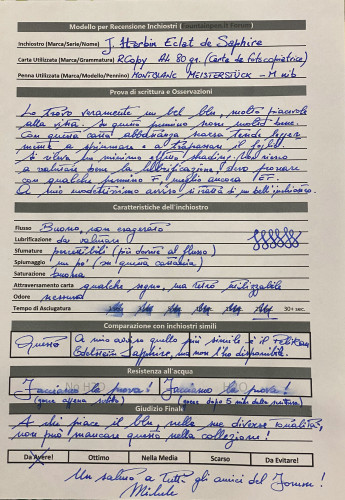 Modello per Recensione Inchiostri (Fountainpen.it Forum)
Inchiostro (Marca/Serie/Nome) J. Herbin Eclat de Saphire
Carta Utilizzata (Marca/Grammatura) RCopy A4 80 gr. (Carta da fotocopiatrice)
Penna Utilizzata (Marca/Modello/Pennino) MONTBLANC MEISTERSTÜCK - M nib
Prova di scrittura e Osservazioni
Lo trovo veramente un bel blu, molto piacevole
alla vista. Su questo pennino scorre molto bene.
Con questa carta abbastanza scarsa tende legger
mente a spiumare e al trapassare il foglio.
Si rileva un minimo effetto shading. Non riesco
a valutare bene la lubrificazione; devo provare
con qualche pennino F, meglio ancora EF.
A mio modestissimo avviso si tratta di un bell'inchiostro.
Caratteristiche dell'inchiostro
Flusso Buono, non esagerato
Lubrificazione da valutare
Sfumature percettibili (più dovute al flusso)
Spiumaggio un po' (su questa cartaccia)
Saturazione buona
Attraversamento carta qualche segno, ma retro utilizzabile
Odore nessuno
Tempo di Asciugatura 30+ sec.
Comparazione con inchiostri simili
Questo A mio avviso quello più simile è il Pelikan
Edelstein Sapphire, ma non l'ho disponibile.
Resistenza all'acqua
Facciamo la prova! Facciamo la prova!
(goccia appena scritto) (goccia dopo 5 minuti dalla scrittura)
Giudizio Finale
A chi piace il blu, nelle sue diverse tonalità,
non può mancare questo, nella collezione!
Da Avere! Ottimo Nella Media Scarso Da Evitare!
Un saluto a tutti gli amici del Forum!
Michele